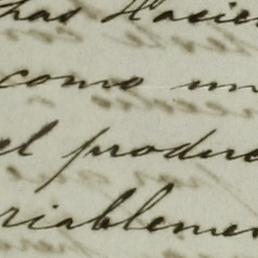 has Hacien
como un
el produc
riablemen